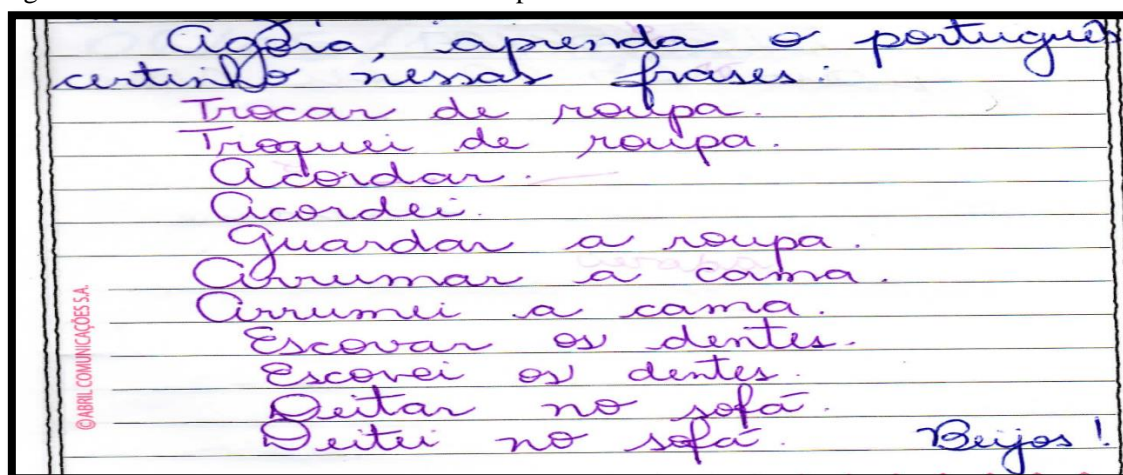 Agora, aprenda o português
certinho nessas frases:
Trocar de roupa.
Troquei de roupa.
Acordar.
Acordei.
Guardar a roupa.
Arrumar a cama.
Arrumei a cama.
Escovar os dentes.
Escovei os dentes.
Deitar no sofá.
Deitei no sofá. Beijos!
©ABRIL COMUNICAÇÕES S.A.